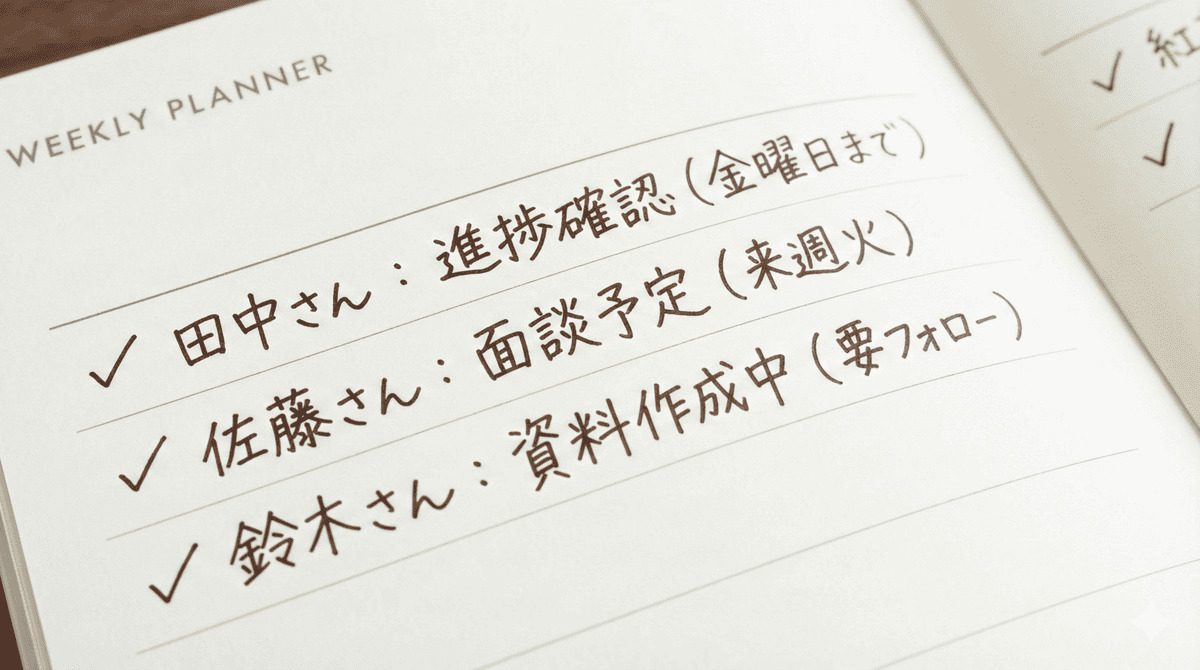 WEEKLY PLANNER
✓ 田中さん：進捗確認（金曜日まで）
✓ 佐藤さん：面談予定（来週火）
✓ 鈴木さん：資料作成中（要フォロー）
✓ 紅
✓